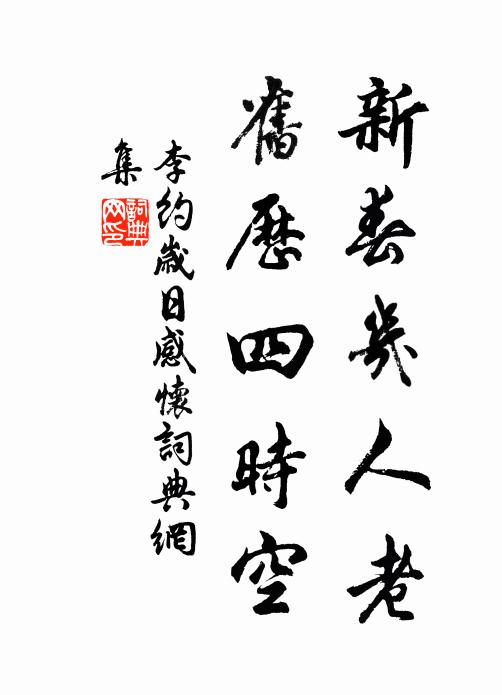 新春幾人老
舊歷四時空
李約歲日感懷詞典網
集
詞典
网印